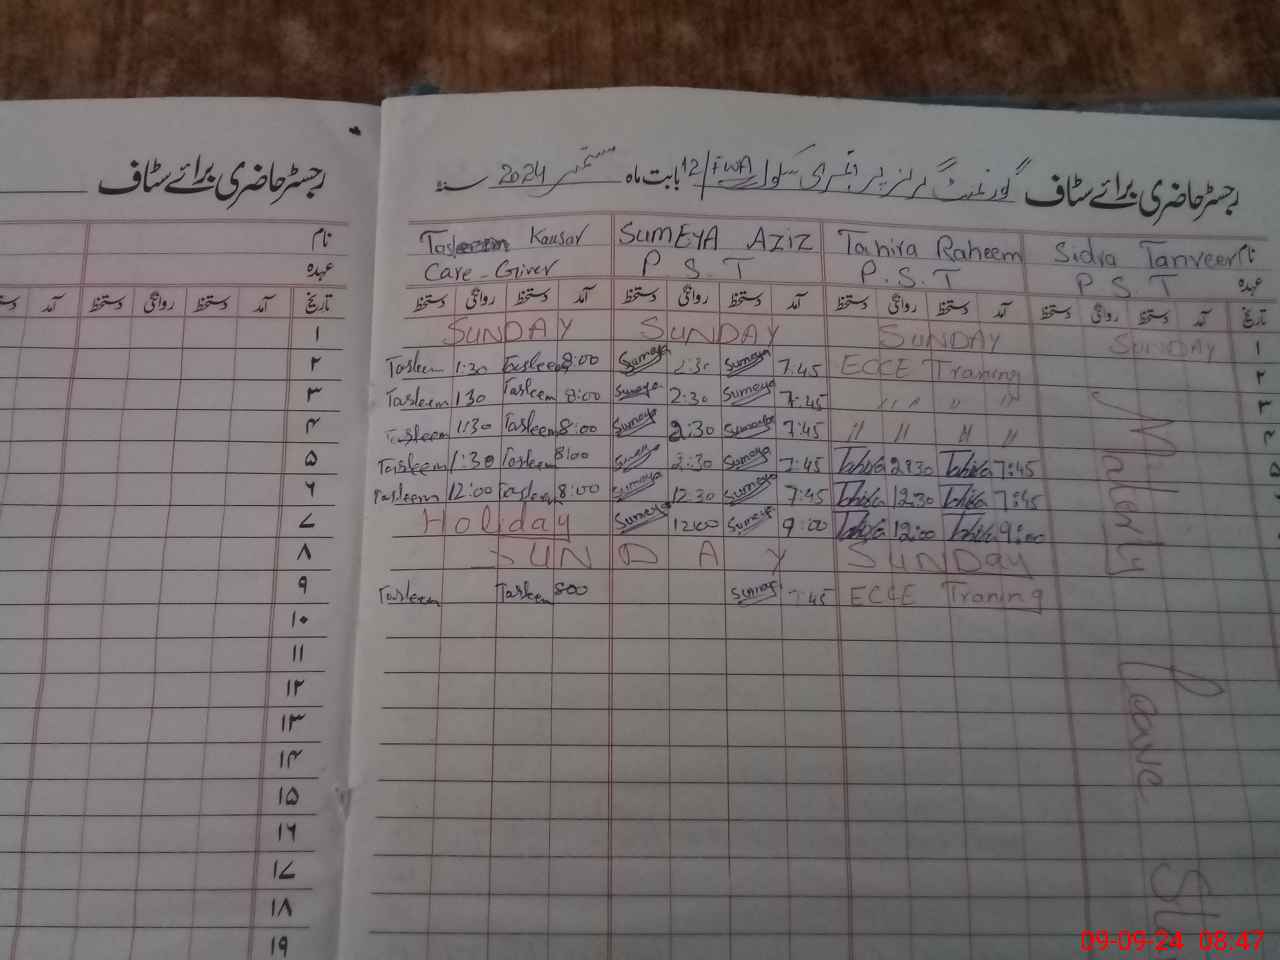 رجسٹر حاضری برائے سٹاف
نام
عہدہ
تاریخ آمد دستخط روانگی دستخط آمد دستخط
۱
۲
۳
۴
۵
۶
۷
۸
۹
۱۰
۱۱
۱۲
۱۳
۱۴
۱۵
۱۶
۱۷
۱۸
۱۹
رجسٹر حاضری برائے سٹاف گورنمنٹ گرلز پرائمری سکول 12/FWA بابت ماہ ستمبر 2024 سنہ
Tasleem Kausar SUMEYA AZIZ Tahira Raheem Sidra Tanveer نام
Care-Giver P.S.T P.S.T P S T عہدہ
دستخط روانگی دستخط آمد دستخط روانگی دستخط آمد دستخط روانگی دستخط آمد دستخط روانگی دستخط آمد تاریخ
SUNDAY SUNDAY SUNDAY SUNDAY ۱
Tasleem 1:30 Tasleem 8:00 Sumeya 2:30 Sumeya 7:45 ECCE Traning ۲
Tasleem 1:30 Tasleem 8:00 Sumeya 2:30 Sumeya 7:45 " " " " ۳
Tasleem 1:30 Tasleem 8:00 Sumeya 2:30 Sumeya 7:45 " " " " ۴
Tasleem 1:30 Tasleem 8:00 Sumeya 2:30 Sumeya 7:45 Tahira 2:30 Tahira 7:45 ۵
Tasleem 12:00 Tasleem 8:00 Sumeya 12:30 Sumeya 7:45 Tahira 12:30 Tahira 7:45 ۶
Holiday Sumeya 12:00 Sumeya 9:00 Tahira 12:00 Tahira 9:00
SUNDAY SUNDAY
Tasleem Tasleem 800 Sumeya 7:45 ECCE Traning
Leave
09-09-24 08:47